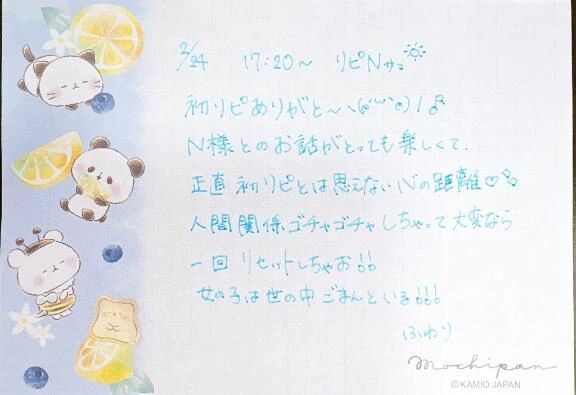 2/24 17:20～ リピNさま
初リピありがと～ヽ(๑'ω'๑)ﾉ♪
N様とのお話がとっても楽しくて、
正直初リピとは思えない心の距離♡
人間関係ゴチャゴチャしちゃって大変なら
一回リセットしちゃお!!
女の子は世の中ごまんといる!!!
ふわり
mochipan
© KAMIO JAPAN